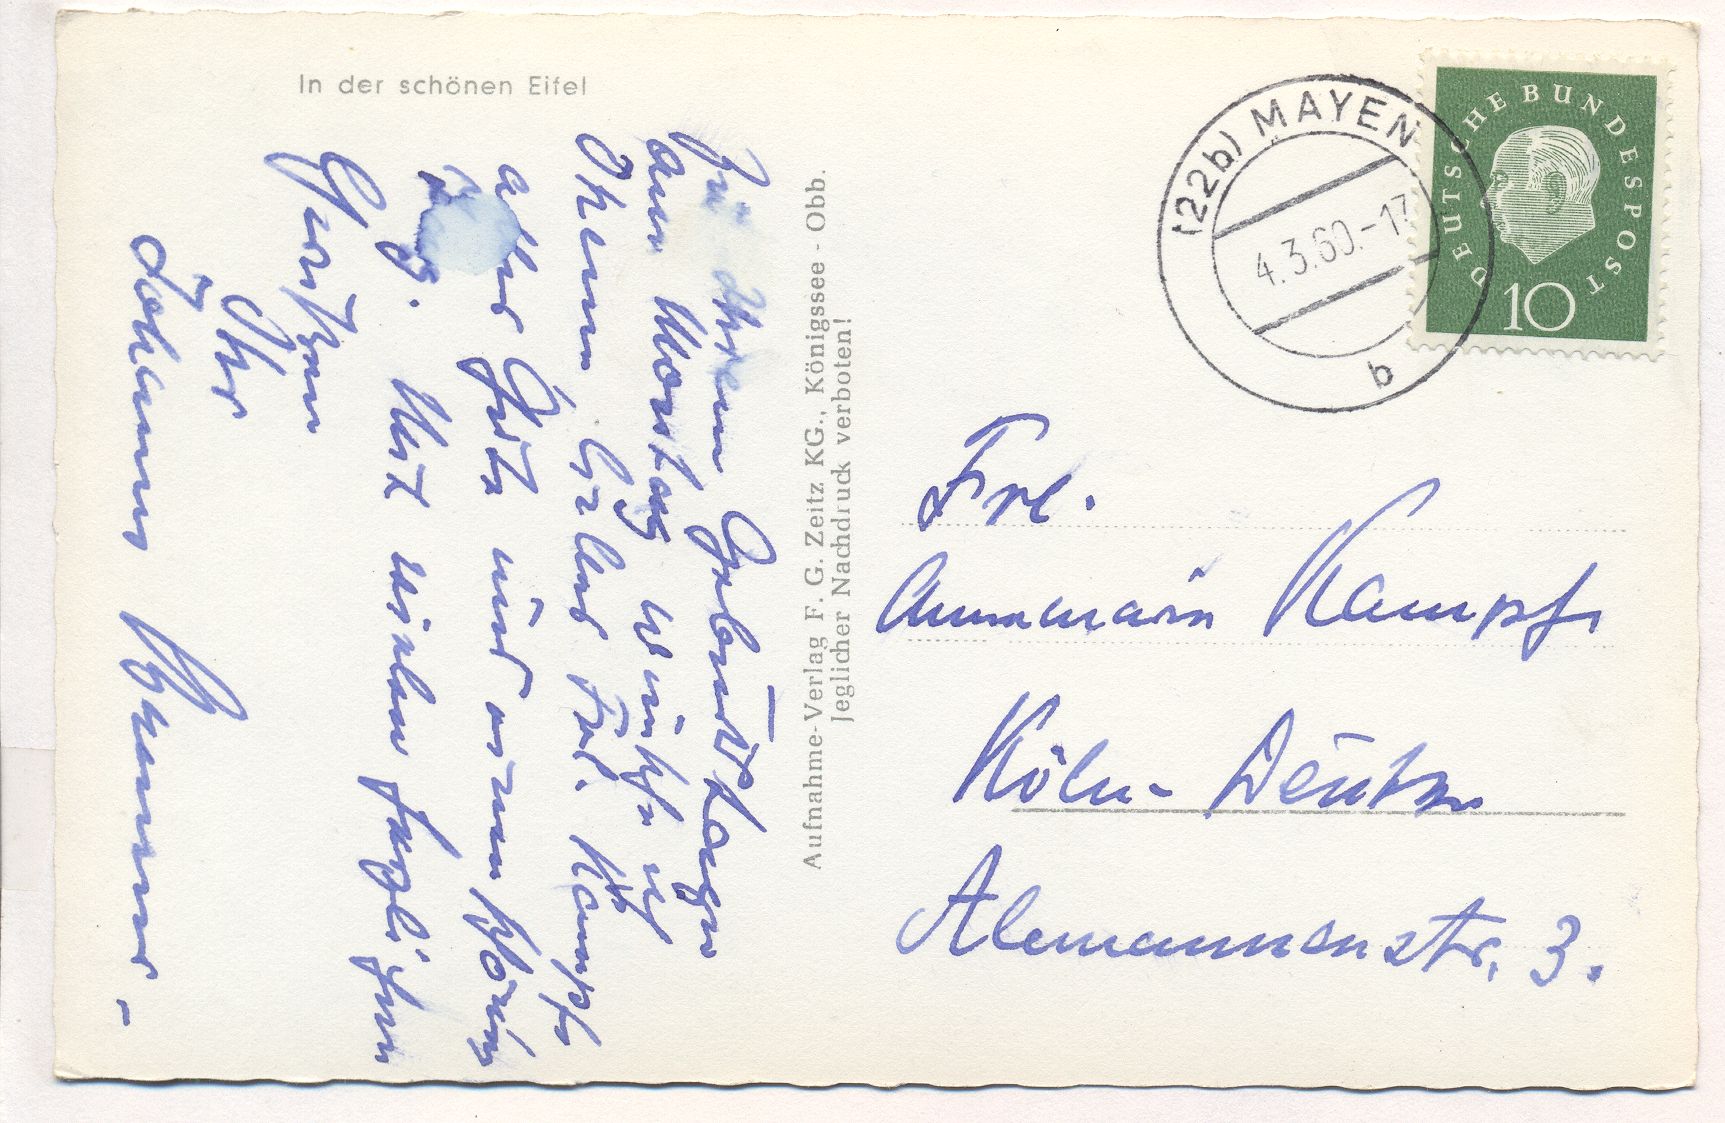 In der schönen Eifel
Zu Ihrem Geburtstage
am Montag wünsche ich
Ihnen liebes Frl. Kampf
alles Gute und
Mit vielen herzlichen
Grüßen
Ihr
Johannes
Aufnahme-Verlag F. G. Zeitz KG., Königssee - Obb.
Jeglicher Nachdruck verboten!
(22b) MAYEN
4.3.60.-17
b
DEUTSCHE BUNDESPOST
10
Frl.
Annemarie Kampf
Köln-Deutz
Alemannenstr. 3.